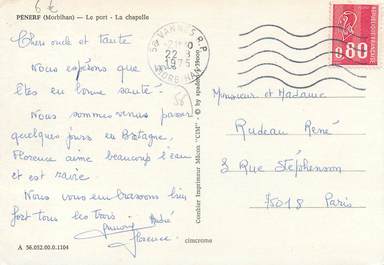 6 €
PÉNERF (Morbihan) - Le port - La chapelle
Chers oncle et tante
Nous espérons que
êtes en bonne santé.
Nous sommes venus passer
quelques jours en Bretagne,
Florence aime beaucoup l'eau
et est ravie.
Nous vous embrassons bien
fort tous les trois.
André
Florence
A 56.052.00.0.1104
cimcrome
Combier Imprimeur Mâcon "CIM"
56 VANNES R.P.
22 - 8
1975
MORBIHAN
56
0,80
Monsieur et Madame
Rudeau René
3 Rue Stéphenson
75018 Paris